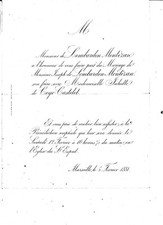 M
Monsieur de Lombardon Montézan
a l'honneur de vous faire part du Mariage de
Monsieur Joseph de Lombardon Montézan
son fils avec Mademoiselle Isabelle
de Coye Castelet
Et vous prie de vouloir bien assister à la
Bénédiction nuptiale que leur sera donnée le
Samedi 12 Février à 10 heures ½ du matin, en
l'Eglise du St Esprit.
Marseille, le Février 1881